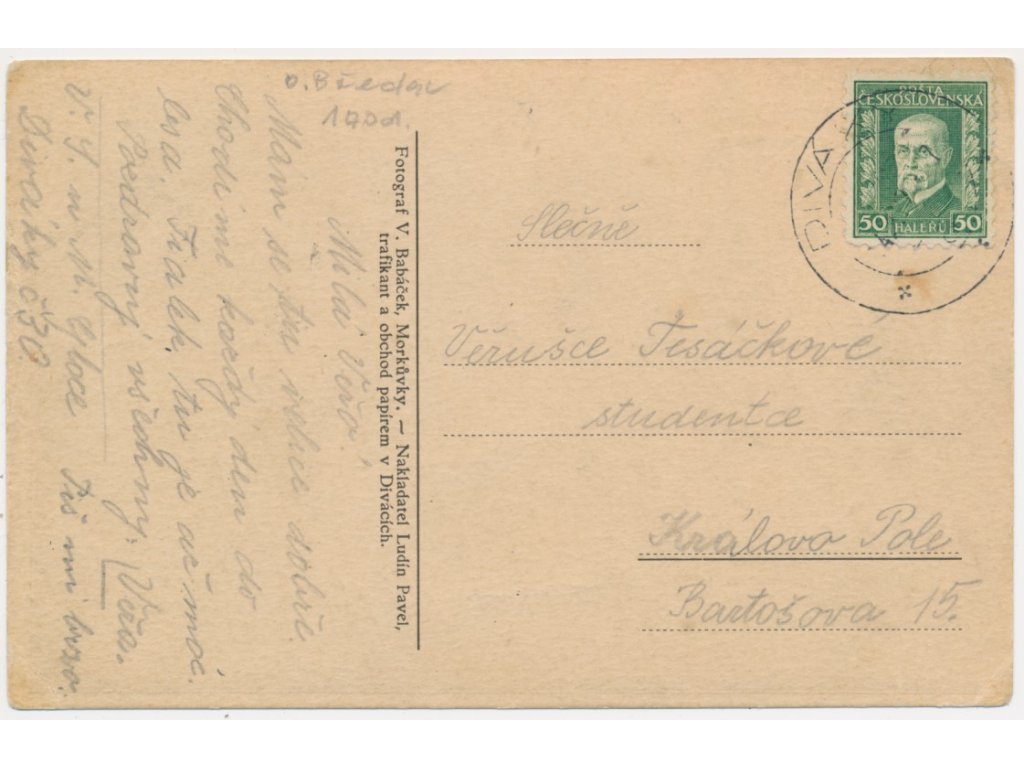 o. Břeclav
1901.
Milá Věro!
Mám se tu velice dobře.
Chodíme každý den do
lesa. Fialek tu je až moc.
Pozdravuj všechny. Věra.
V. S. u M.
Diváky č 30
Piš mi brzo.
Fotograf V. Babáček, Morkůvky. — Nakladatel Ludín Pavel,
trafikant a obchod papírem v Divácích.
POŠTA
ČESKOSLOVENSKÁ
50 HALÉŘŮ 50
DIVÁKY
Slečně
Věrušce Tesáčkové
studentce
Královo Pole
Bartošova 15.